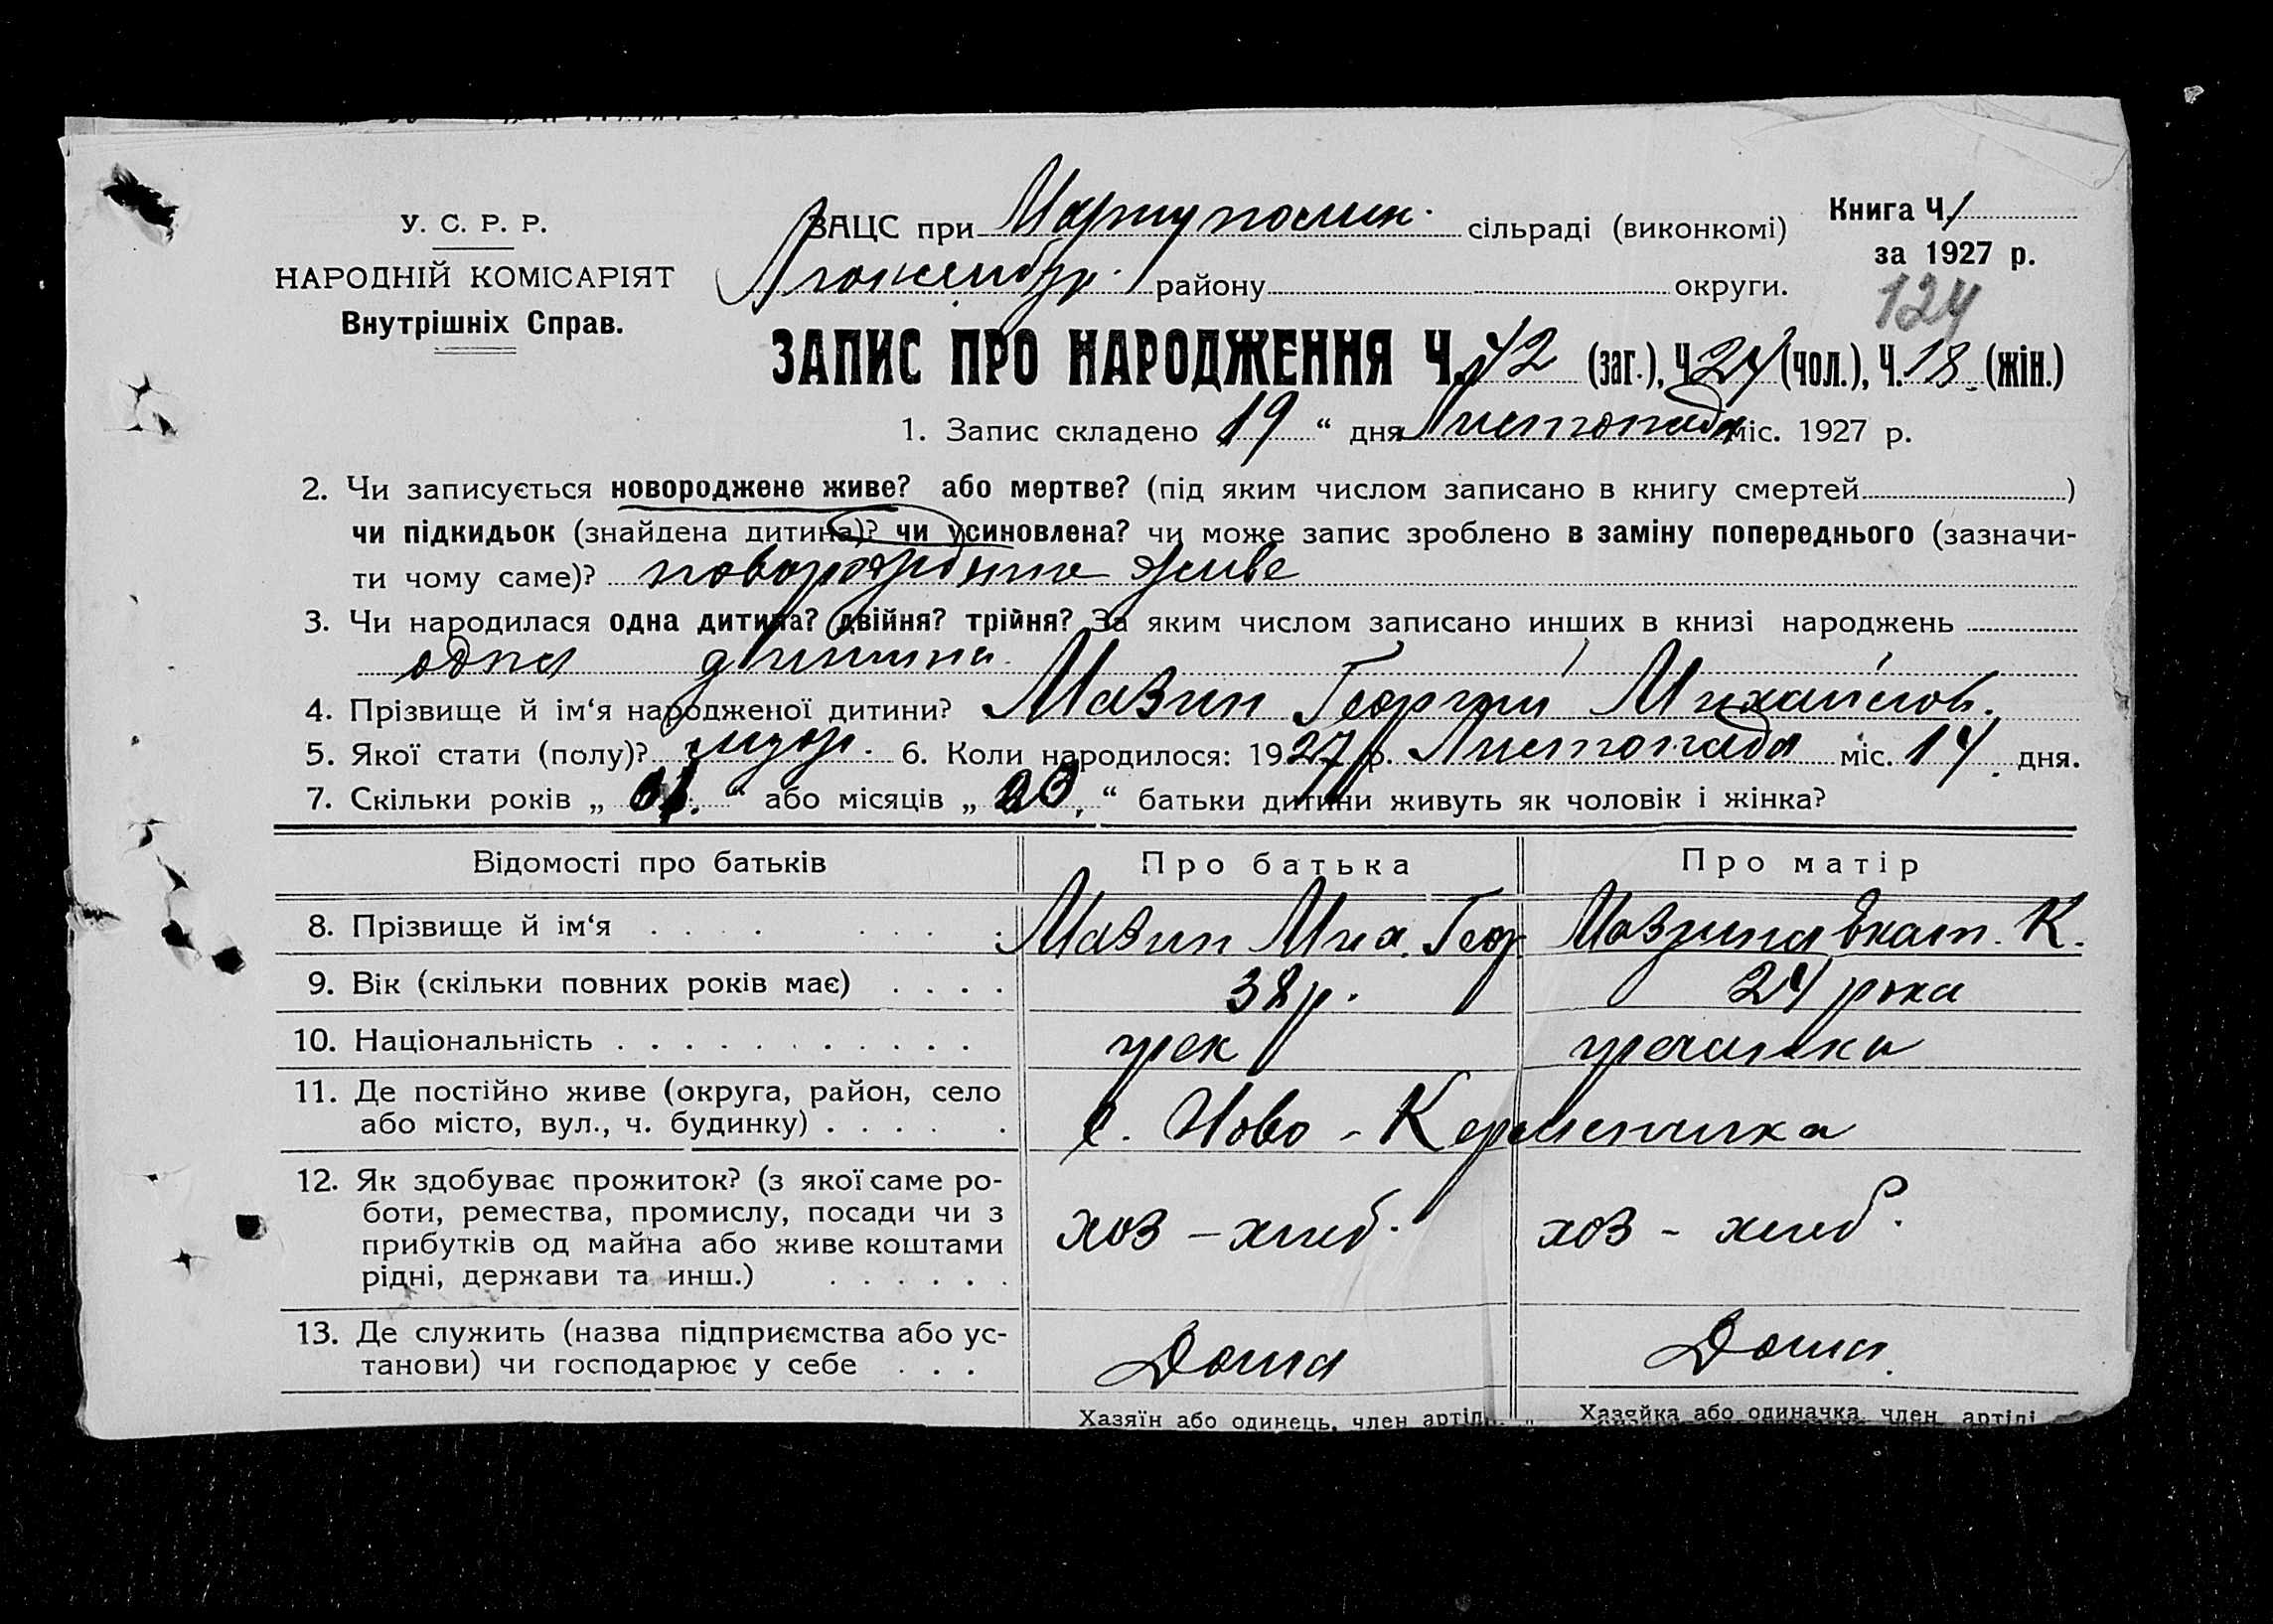 У. С. Р. Р.
НАРОДНІЙ КОМІСАРІЯТ
Внутрішніх Справ.
ЗАЦС при Мариуполик. сільраді (виконкомі)
району округи.
Книга Ч. 1
за 1927 р.
124
ЗАПИС ПРО НАРОДЖЕННЯ Ч. 42 (заг.), Ч. 24 (чол.), Ч. 18. (жін.)
1. Запис складено 19 “ дня Листопада міс. 1927 р.
2. Чи записується новороджене живе? або мертве? (під яким числом записано в книгу смертей )
чи підкидьок (знайдена дитина)? чи усиновлена? чи може запис зроблено в заміну попереднього (зазначи-
ти чому саме)? живе
3. Чи народилася одна дитина? двійня? трійня? За яким числом записано инших в книзі народжень
одна дитина
4. Прізвище й ім‘я народженої дитини? Мазин Георгий Михайлов.
5. Якої стати (полу)? муж. 6. Коли народилося: 1927 р. Листопада міс. 14 дня.
7. Скільки років „ “ або місяців „ “ батьки дитини живуть як чоловік і жінка?
Відомості про батьків Про батька Про матір
8. Прізвище й ім‘я . . . . Мазин Мих. Геор Мазина Екат. К.
9. Вік (скільки повних років має) . . . . 38 р. 24 рока
10. Національність . . . . . . . . . . . грек гречанка
11. Де постійно живе (округа, район, село
або місто, вул., ч. будинку) . . . . . с. Ново - Керменчика
12. Як здобуває прожиток? (з якої саме ро-
боти, ремества, промислу, посади чи з
прибутків од майна або живе коштами
рідні, держави та инш.) . . . . . . хоз - хлеб. хоз - хлеб.
13. Де служить (назва підприємства або ус-
танови) чи господарює у себе . . . Дома Дома.
Хазяїн або одинець, член артілі Хазяйка або одиначка, член артілі